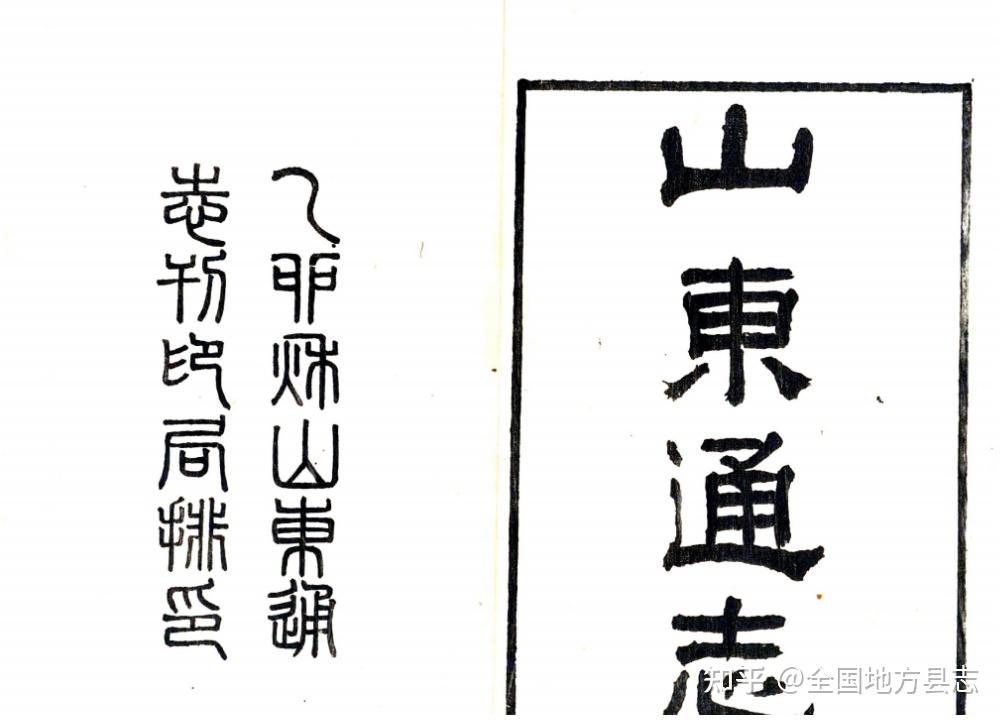 山東通志
乙卯秋山東通
志刊印局排印
知乎 @全国地方县志